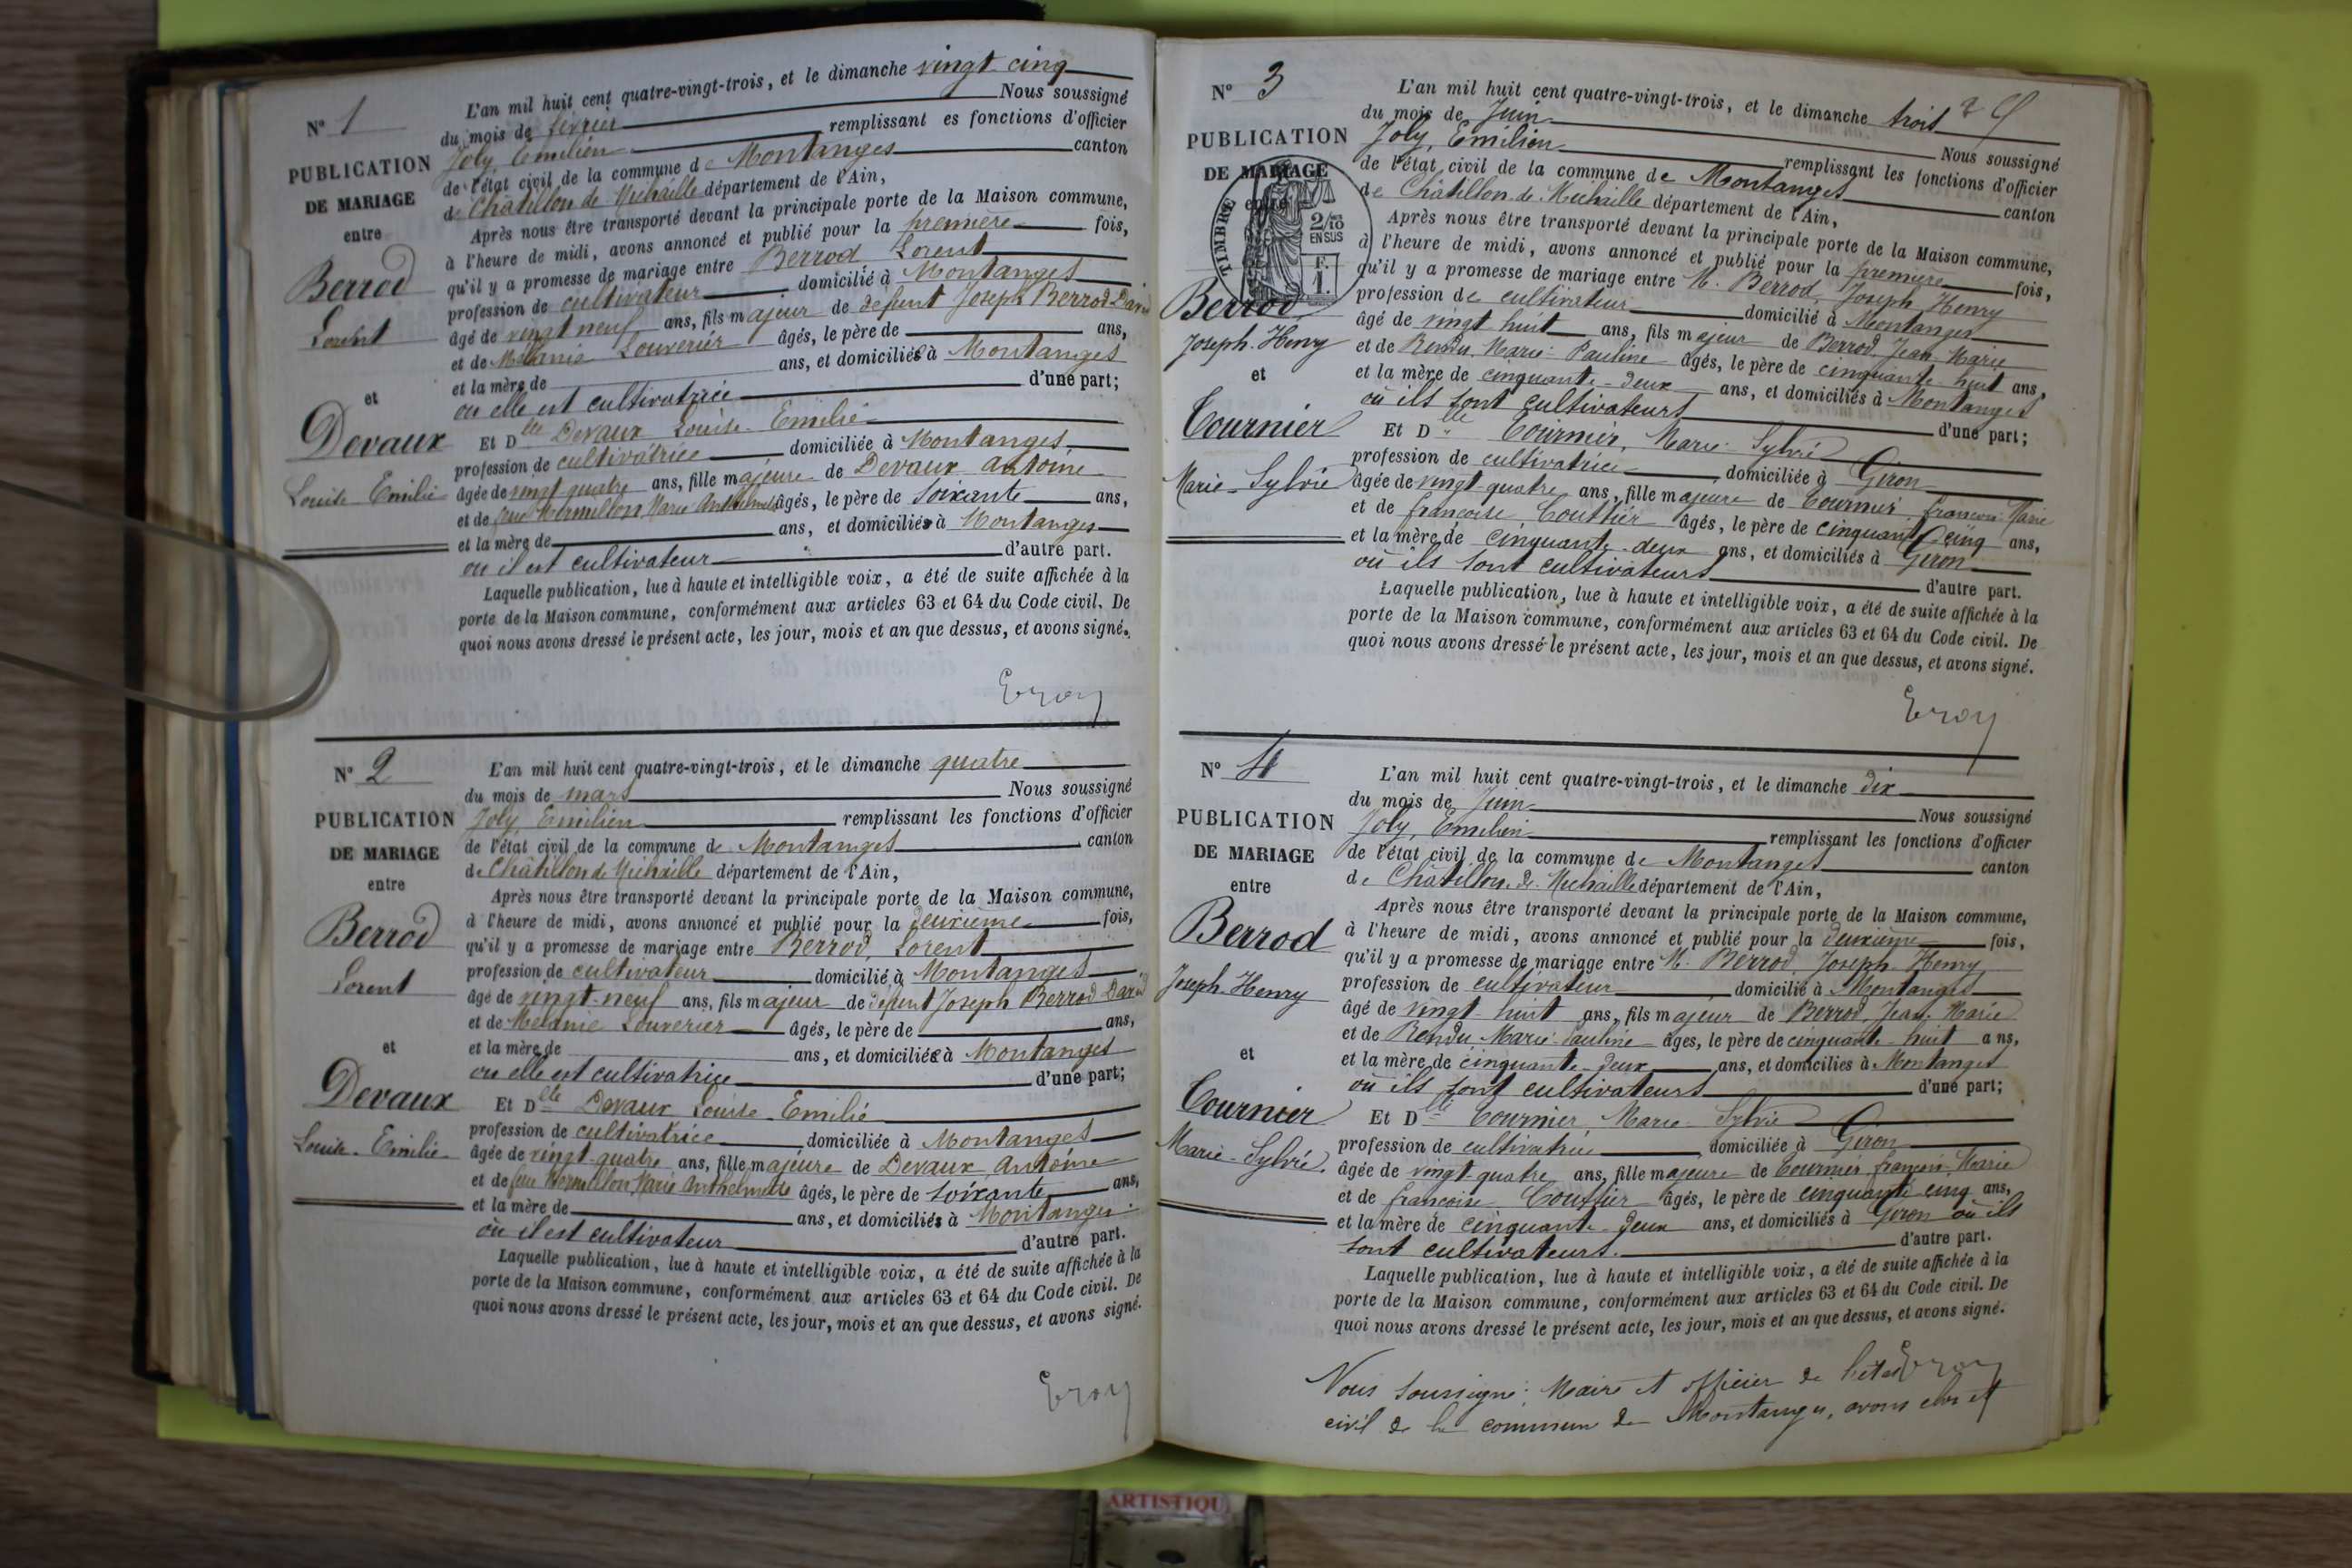 N° 1
PUBLICATION
DE MARIAGE
entre
Berrod
Lorent
et
Devaux
Louise Emilie
L'an mil huit cent quatre-vingt-trois, et le dimanche vingt cinq
du mois de fevrier Nous soussigné
Joly Emilien remplissant es fonctions d'officier
de l'état civil de la commune de Montanges canton
de Châtillon de Michaille département de l'Ain,
Après nous être transporté devant la principale porte de la Maison commune,
à l'heure de midi, avons annoncé et publié pour la première fois,
qu'il y a promesse de mariage entre Berrod Lorent
profession de cultivateur domicilié à Montanges
âgé de vingt neuf ans, fils majeur de defunt Joseph Berrod David
et de Mélanie Louverier âgés, le père de ans,
et la mère de ans, et domiciliés à Montanges
ou elle est cultivatrice d'une part;
Et Dlle Devaux Louise Emilie
profession de cultivatrice domiciliée à Montanges
âgée de vingt quatre ans, fille majeure de Devaux Antoine
et de feue Mermillon Marie Anthelmette âgés, le père de soixante ans,
et la mère de ans, et domiciliés à Montanges
ou il est cultivateur d'autre part.
Laquelle publication, lue à haute et intelligible voix, a été de suite affichée à la
porte de la Maison commune, conformément aux articles 63 et 64 du Code civil. De
quoi nous avons dressé le présent acte, les jour, mois et an que dessus, et avons signé.
N° 2
PUBLICATION
DE MARIAGE
entre
Berrod
Lorent
et
Devaux
Louise Emilie
L'an mil huit cent quatre-vingt-trois, et le dimanche quatre
du mois de mars Nous soussigné
Joly, Emilien remplissant les fonctions d'officier
de l'état civil de la commune de Montanges canton
de Châtillon de Michaille département de l'Ain,
Après nous être transporté devant la principale porte de la Maison commune,
à l'heure de midi, avons annoncé et publié pour la deuxieme fois,
qu'il y a promesse de mariage entre Berrod, Lorent
profession de cultivateur domicilié à Montanges
âgé de vingt-neuf ans, fils majeur de défunt Joseph Berrod David
et de Mélanie Louverier âgés, le père de ans,
et la mère de ans, et domiciliés à Montanges
ou elle est cultivatrice d'une part;
Et Dlle Devaux Louise Emilie
profession de cultivatrice domiciliée à Montanges
âgée de vingt-quatre ans, fille majeure de Devaux Antoine
et de feue Mermillon Marie Anthelmette âgés, le père de soixante ans,
et la mère de ans, et domiciliés à Montanges
où il est cultivateur d'autre part.
Laquelle publication, lue à haute et intelligible voix, a été de suite affichée à la
porte de la Maison commune, conformément aux articles 63 et 64 du Code civil. De
quoi nous avons dressé le présent acte, les jour, mois et an que dessus, et avons signé.
N° 3
PUBLICATION
DE MARIAGE
entre
TIMBRE
2/10
EN SUS
F.
1.
Berrod
Joseph-Henry
et
Tournier
Marie-Sylvie
L'an mil huit cent quatre-vingt-trois, et le dimanche trois
du mois de Juin Nous soussigné
Joly, Emilien remplissant les fonctions d'officier
de l'état civil de la commune de Montanges canton
de Châtillon de Michaille département de l'Ain,
Après nous être transporté devant la principale porte de la Maison commune,
à l'heure de midi, avons annoncé et publié pour la première fois,
qu'il y a promesse de mariage entre M. Berrod, Joseph Henry
profession de cultivateur domicilié à Montanges
âgé de vingt huit ans, fils majeur de Berrod Jean-Marie
et de Rendu, Marie-Pauline âgés, le père de cinquante-huit ans,
et la mère de cinquante-deux ans, et domiciliés à Montanges
où ils sont cultivateurs d'une part;
Et Dlle Tournier, Marie-Sylvie
profession de cultivatrice domiciliée à Giron
âgée de vingt-quatre ans, fille majeure de Tournier, françois Marie
et de françoise Couttier âgés, le père de cinquante cinq ans,
et la mère de cinquante-deux ans, et domiciliés à Giron
où ils sont cultivateurs d'autre part.
Laquelle publication, lue à haute et intelligible voix, a été de suite affichée à la
porte de la Maison commune, conformément aux articles 63 et 64 du Code civil. De
quoi nous avons dressé le présent acte, les jour, mois et an que dessus, et avons signé.
N° 4
PUBLICATION
DE MARIAGE
entre
Berrod
Joseph-Henry
et
Tournier
Marie-Sylvie
L'an mil huit cent quatre-vingt-trois, et le dimanche dix
du mois de Juin Nous soussigné
Joly, Emilien remplissant les fonctions d'officier
de l'état civil de la commune de Montanges canton
de Châtillon de Michaille département de l'Ain,
Après nous être transporté devant la principale porte de la Maison commune,
à l'heure de midi, avons annoncé et publié pour la deuxième fois,
qu'il y a promesse de mariage entre M. Berrod, Joseph Henry
profession de cultivateur domicilié à Montanges
âgé de vingt-huit ans, fils majeur de Berrod, Jean-Marie
et de Rendu Marie-Pauline âgés, le père de cinquante-huit ans,
et la mère de cinquante-deux ans, et domiciliés à Montanges
où ils sont cultivateurs d'une part;
Et Dlle Tournier, Marie-Sylvie
profession de cultivatrice domiciliée à Giron
âgée de vingt quatre ans, fille majeure de Tournier françois-Marie
et de françoise Couttier âgés, le père de cinquante cinq ans,
et la mère de cinquante-deux ans, et domiciliés à Giron où ils
sont cultivateurs. d'autre part.
Laquelle publication, lue à haute et intelligible voix, a été de suite affichée à la
porte de la Maison commune, conformément aux articles 63 et 64 du Code civil. De
quoi nous avons dressé le présent acte, les jour, mois et an que dessus, et avons signé.
Nous soussigné: Maire et officier de l'état
civil de la commune de Montanges, avons clos et
ARTISTIQU